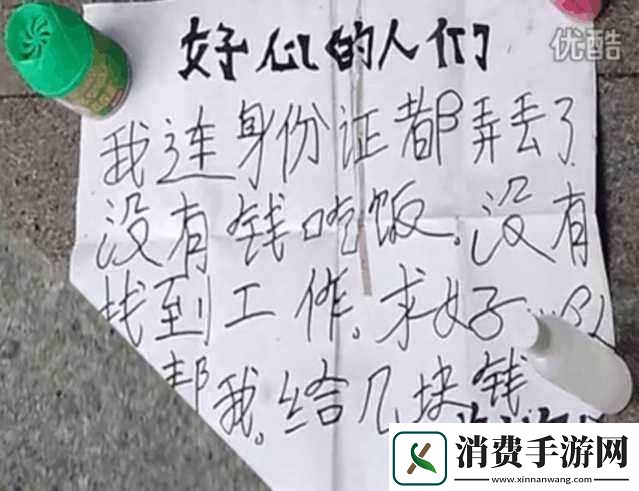 好心的人们
优酷
我连身份证都弄丢了
没有钱吃饭。没有
找到工作。求好
帮我。给几块钱
消费手游网
www.xinnanwang.com